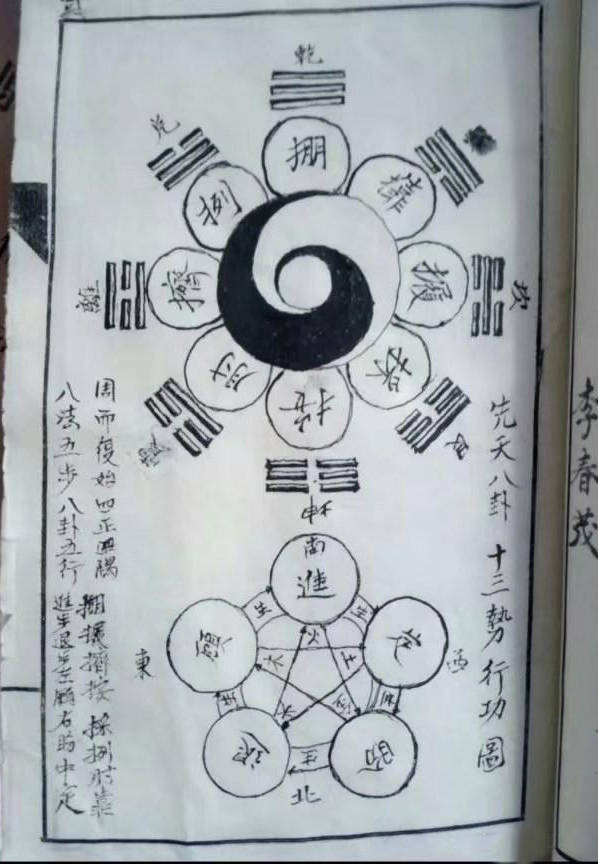 乾
兌
掤
靠
挒
擠
攦
坎
離
肘
採
艮
按
坤
先天八卦 十三勢行功圖
周而復始四正四隅 掤攦擠按 採挒肘靠
八法五步八卦五行 進步退步左顧右盼中定
南
進
生
生
火
顧
定
東
西
木
土
生
生
水
金
退
盼
生
北
李春茂